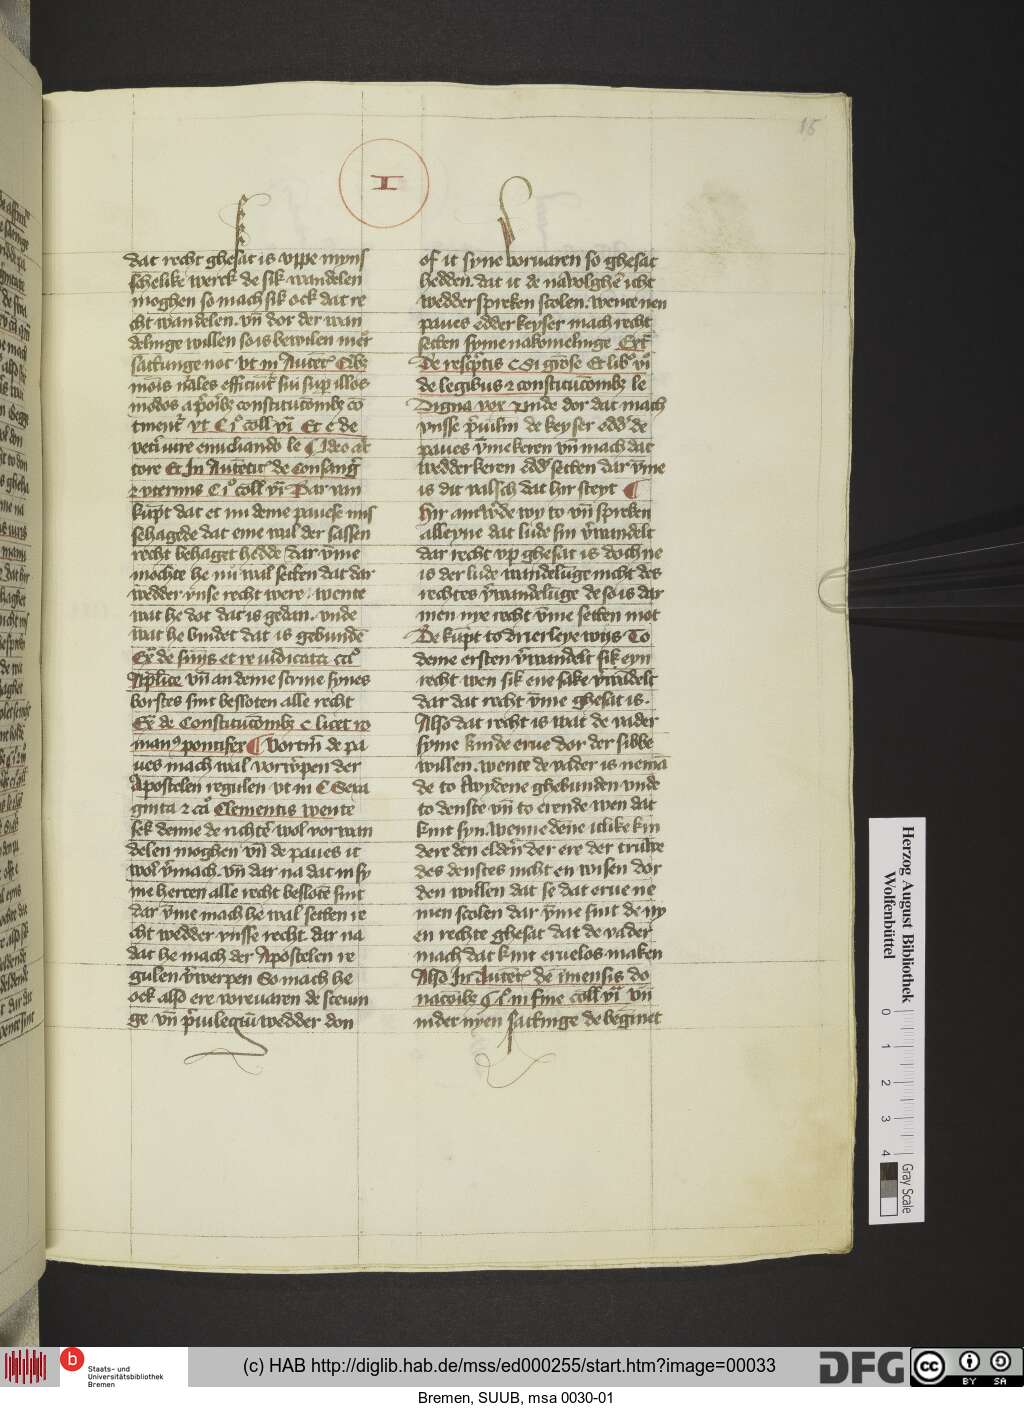 15
I
dat recht ghesat is vppe myns
schelike werck de sik wandelen
moghen so mach sik ock dat re
cht wandelen. vn̄ dor der wan
delinge willen so is bewilen mer
sattunge not vt in Auten̄
mois
modos constitucōnibꝫ cō
tinent vt C coll vi Et c de
veti iure enucliando le ¶ Ideo
tore Et In Autētic de Consang̃
Dar van
kūpt dat et nu deme pauese mis
sehagede dat eme wal der sassen
recht behaget hedde dar v̄me
mochte he nū wal setten dat dar
wedder vnse recht were. wente
wat he dot dat is gedan. vnde
wat he bindet dat is gebundē
Ex̄ de et re iudicata
Aplice vn̄ an deme scrine synes
borstes sint besloten alle recht
Ex̄ de Constitucōnibꝫ c licet ro
manꝰ pontifex ¶ Vortm̄ de pa
ues mach wal vorw̄pen der
Apostelen regulen vt in C Sexa
ginta Clementis wente
sek denne de richte wol vorwan
delen moghen vn̄ de paues it
wol v̄mach. vn̄ dar na dat in sy
me herten alle recht beslotē sint
dar v̄me mach he wal setten re
cht wedder vnsse recht. dar na
dat he mach der Apostelen re
gulen v̄werpen So mach he
ock also ere voreuaren de
ge vn̄ p̄iulegiū wedder don
of it syne voruaren so ghesat
hedden. dat it de nāvolghē icht
wedderspreken scolen. wente nen
paues edder keyser mach recht
setten syme nakomelinge Ext̄
De resc̄ptis
de legibus ⁊ constitucōnibꝫ le
Digna vox vnde dor dat mach
vnsse de keyser edd̄ de
paues v̄mekeren vn̄ mach dat
wedderkeren odd̄ setten dar v̄me
is dit valsch dat hir steyt ¶
Hir antw̄de wy to vn̄ spreken
alleyne dat lude sin v̄wandelt
dar recht vp ghesat is doch ne
is der lude wandelūge nicht des
rechtes v̄wandelūge de so is dar
men nye recht v̄me setten mot
De kūpt to drierleye wijs To
deme ersten v̄wandelt sik eyn
recht wen sik ene sake v̄wādelt
dar dat recht v̄me ghesat is.
Also dat recht is wat de vader
syme kinde erue dor der sibbe
willen. wente de vader is nemā
de to ghebunden vnde
to denste vn̄ to erende wen dat
kint syn. wenne dēne itlike kin
dere den elderen der ere der truwe
des denstes nicht en wisen dor
den willen dat se dat erue ne
men scolen dar v̄me sint de ny
en rechte ghesat dat de vader
mach dat kint eruelos maken
Also In Auten̄ de īmensis do
natōibꝫ in fine coll vi vn̄
in der nyen sattinge de beginet
Herzog August Bibliothek
Wolfenbüttel
0 1 2 3 4
Gray Scale
b
Staats- und
Universitätsbibliothek
Bremen
(c) HAB http://diglib.hab.de/mss/ed000255/start.htm?image=00033
DFG
cc BY SA
Bremen, SUUB, msa 0030-01